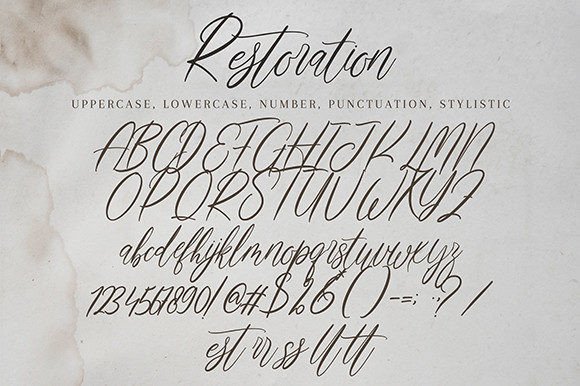 Restoration
UPPERCASE, LOWERCASE, NUMBER, PUNCTUATION, STYLISTIC
ABCDEFGHIJKLMN
OPQRSTUVWXYZ
abcdefghijklmnopqrstuvwxyz
1234567890!@#$%&*()-=;:,?/
est rr ss ll tt